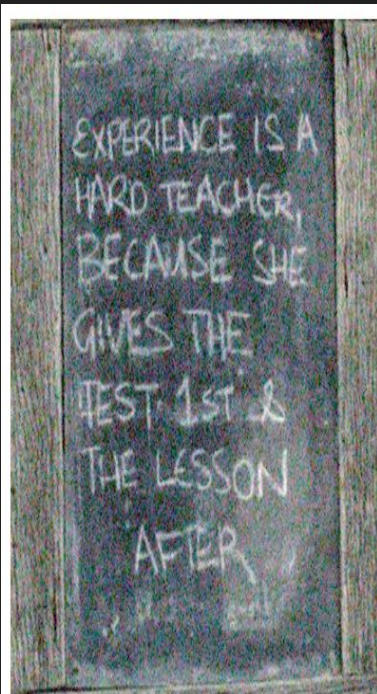 EXPERIENCE IS A
HARD TEACHER,
BECAUSE SHE
GIVES THE
TEST 1ST &
THE LESSON
AFTER